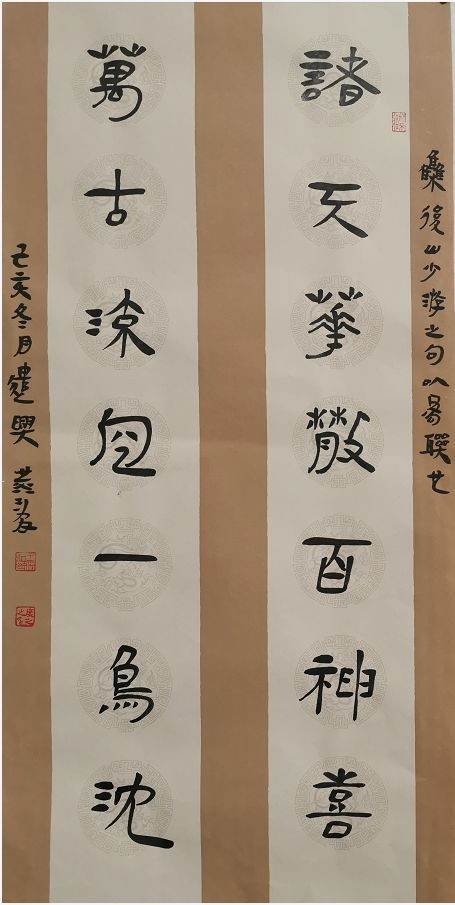 集後山少游之句以為聯也
諸天華散百神喜
萬古涼一鳥沈
己亥冬月建興